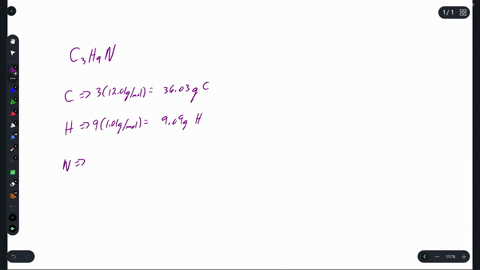 1 / 1
C₃H₉N
C => 3(12.01g/mol) = 36.03g C
H => 9(1.01g/mol) = 9.09g H
N =>